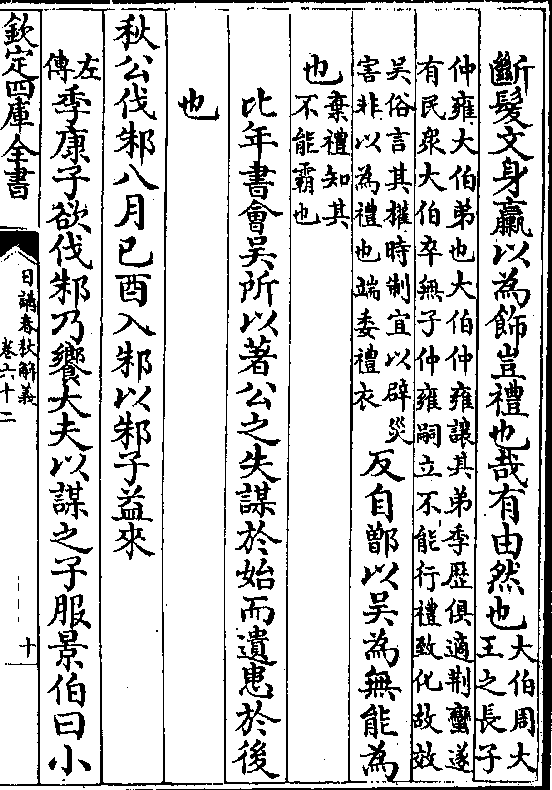 斷髮文身臝以為飾豈禮也哉有由然也大伯周大
王之長子
仲雍大伯弟也大伯仲雍讓其弟季歷俱適荆蠻遂
有民衆大伯卒無子仲雍嗣立不能行禮致化故效
吳俗言其權時制宜以辟災
害非以為禮也端委禮衣
反自鄫以吳為無能為
也棄禮知其
不能霸也
比年書會吳所以著公之失謀於始而遺患於後
也
秋公伐邾八月已酉入邾以邾子益來
左傳季康子欲伐邾乃饗大夫以謀之子服景伯曰小
欽定四庫全書
日講春秋解義
卷六十二
十